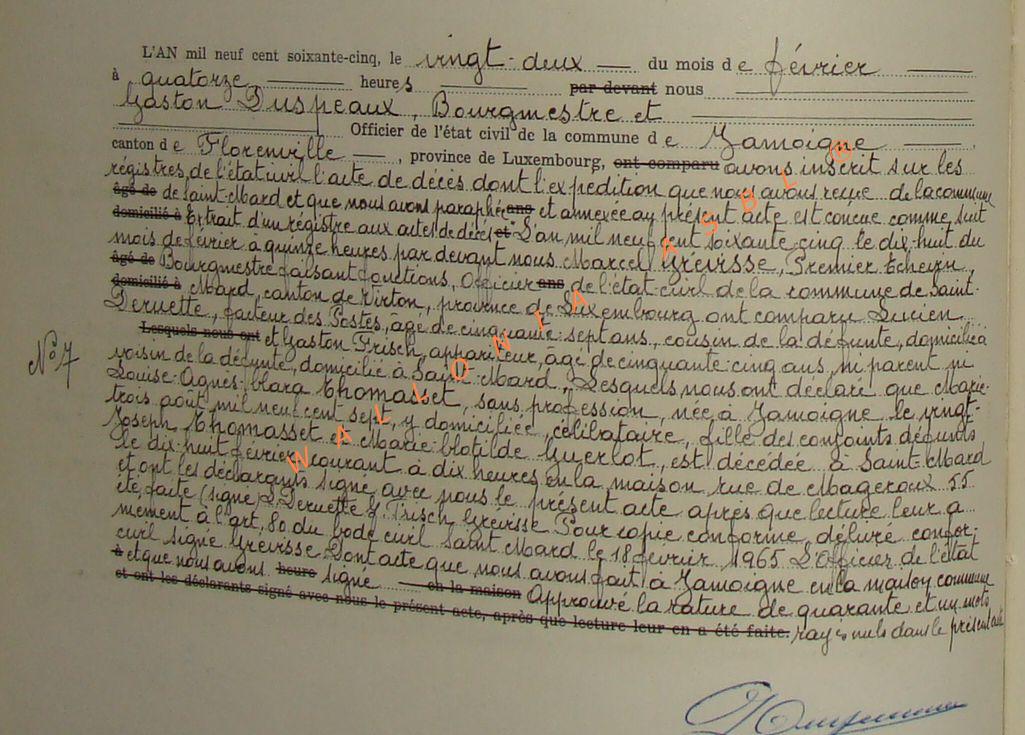 L'AN mil neuf cent soixante-cinq, le vingt-deux du mois de février
à quatorze heures par devant nous
Gaston Duspeaux, Bourgmestre et
Officier de l'état civil de la commune de Jamoigne,
canton de Florenville, province de Luxembourg, ont comparu avons inscrit sur les
régistres de l'état civil l'acte de décès dont l'expedition que nous avons reçue de la commune
âgé de de Saint-Mard et que nous avons paraphée ans et annexée au présent acte est conçue comme suit
domicilié à Extrait d'un régistre aux actes de décès et L'an mil neuf cent soixante cinq le dix-huit du
mois de février à quinze heures par devant nous Marcel Grévisse, Premier Echevin,
âgé de Bourgmestre faisant fonctions, Officier ans de l'état civil de la commune de Saint-
domicilié à Mard, canton de Virton, province de Luxembourg ont comparu Lucien
Deruette, facteur des Postes, âgé de cinquante-sept ans, cousin de la défunte, domicilié à
Lesquels nous ont et Gaston Frisch, appariteur, âgé de cinquante-cinq ans, ni parent ni
N° 7
voisin de la défunte, domicilié à Saint-Mard, Lesquels nous ont déclaré que Marie-
Louise-Agnès-Clara Thomasset, sans profession, née à Jamoigne le vingt-
trois août mil neuf cent sept, y domiciliée, célibataire, fille des conjoints défunts
Joseph Thomasset et Marie-Clotilde Guerlot, est décédée à Saint-Mard
le dix-huit février courant à dix heures en la maison rue de Mageroux 55
et ont les déclarants signé avec nous le présent acte après que lecture leur a
été faite (signé) L Deruette G. Frisch Grévisse Pour copie conforme, délivré confor-
mément à l'art. 80 du Code civil Saint Mard le 18 février 1965 L'Officier de l'état
civil signé Grévisse Dont acte que nous avons fait à Jamoigne en la maison commune
à et que nous avons heure signé en la maison Approuvé la rature de quarante et un mots
et ont les déclarants signé avec nous le présent acte, après que lecture leur en a été faite. rayés nuls dans le présent acte
WALLONIA ASBL ©